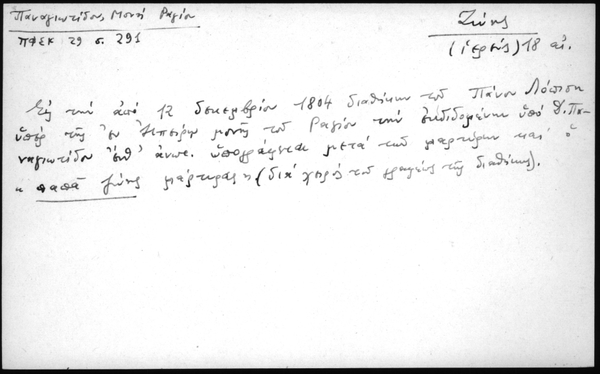 Παναγιωτίδου, Μονή Ραγίου
ΠΦΣΚ 29 σ. 291
Ζώης
(ἱερεύς) 18 αἰ.
Εἰς τήν ἀπό 12 δεκεμβρίου 1804 διαθήκην τοῦ Πάνου Λόπση
ὑπέρ τῆς ἐν Ἠπείρῳ μονῆς τοῦ Ραγίου τήν ἐκδιδομένην ὑπό Δ. Πα-
ναγιωτίδου ἐνθ' ἀνωτ. ὑπογράφεται μετά τῶν μαρτύρων καί ὁ
" παπᾶ ζώης μάρτυρας " (διά χειρός τοῦ γραφέως τῆς διαθήκης).